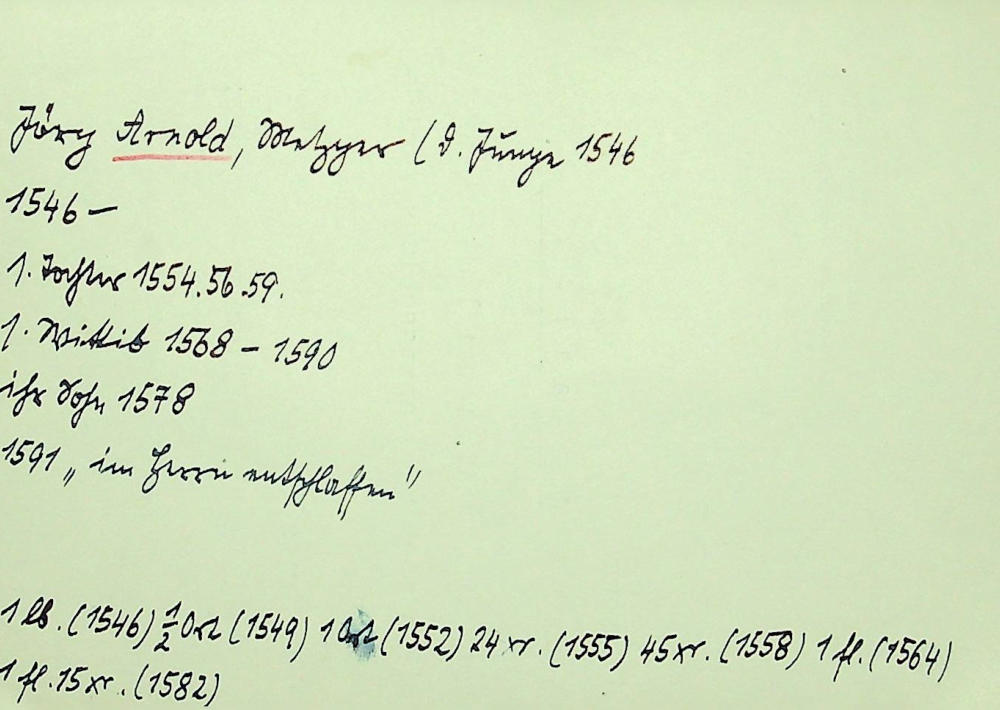 Jörg Arnold, Metzger (d. Junge 1546
1546 –
1. Tochter 1554.56.59.
1. Wittib 1568 – 1590
ihr Sohn 1578
1591 „im Herrn entschlaffen"
1 lb. (1546) ½ Ort (1549) 1 Ort (1552) 24 xr. (1555) 45 xr. (1558) 1 fl. (1564)
1 fl. 15 xr. (1582)